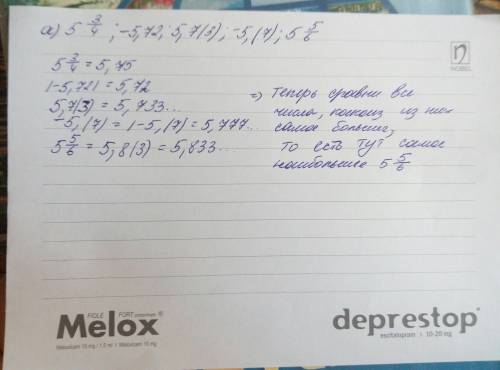 а) 5 3/4 ; -5,72; 5,7(3); -5,(7); 5 5/6
5 3/4 = 5,75
|-5,72| = 5,72
5,7(3) = 5,733...
-5,(7) = |-5,(7) = 5,777...
5 5/6 = 5,8(3) = 5,833...
=> Теперь сравни все
числа, какоиз из них
самое больше,
то есть тут самое
наибольшее 5 5/6
n
NOBEL
FIOLE FORT comprimate
Melox®
Meloxicam 10 mg / 1.0 ml | Meloxicam 15 mg
deprestop®
escitalopram | 10-20 mg